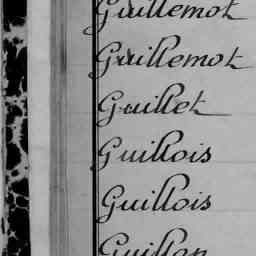 Guillemot
Guillemot
Guillet
Guillois
Guillois
Guillon